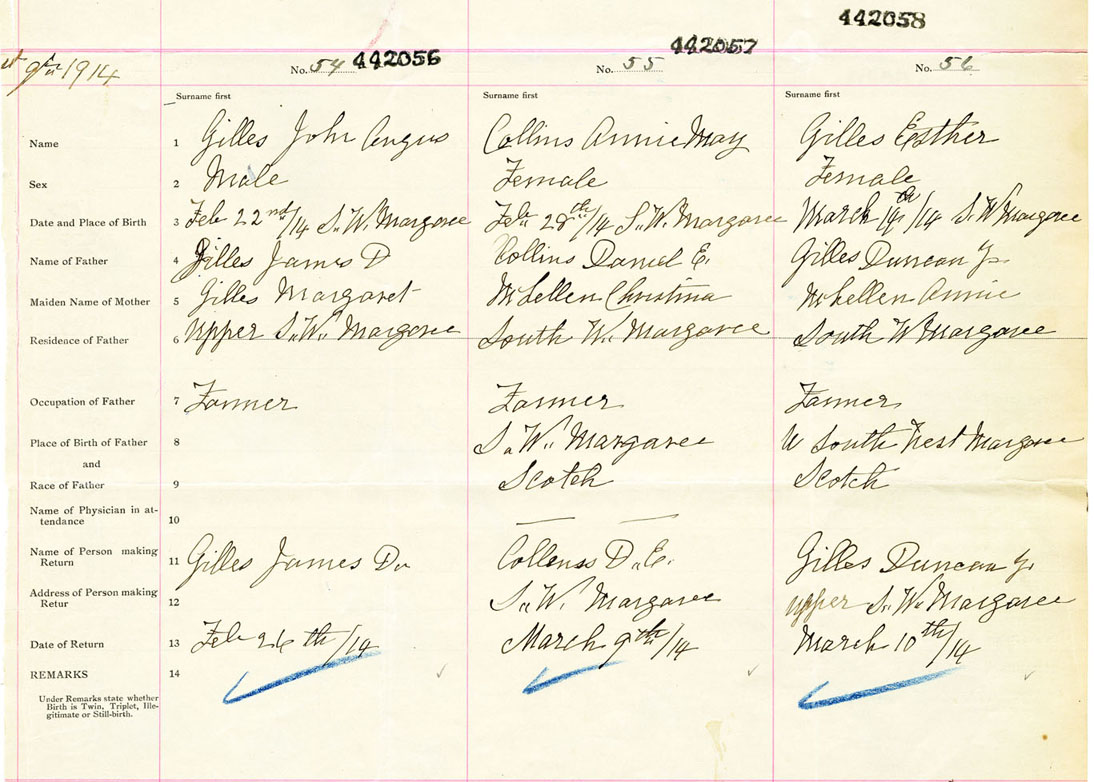 442058
442056 442057
9th 1914 No. 54 No. 55 No. 56
Surname first Surname first Surname first
Name 1 Gilles John Angus Collins Annie May Gilles Esther
Sex 2 Male Female Female
Date and Place of Birth 3 Feb 22nd/14 S. W. Margaree Feb 28th/14 S. W. Margaree March /14 S. W. Margaree
Name of Father 4 Gilles James D Collins Daniel E. Gilles Duncan J.
Maiden Name of Mother 5 Gilles Margaret McLellen Christina McLellen Annie
Residence of Father 6 Upper S. W. Margaree South W. Margaree South W Margaree
Occupation of Father 7 Farmer Farmer Farmer
Place of Birth of Father 8 S. W. Margaree South West Margaree
and
Race of Father 9 Scotch Scotch
Name of Physician in at-
tendance 10
Name of Person making
Return 11 Gilles James D. D. E. Gilles Duncan J.
Address of Person making
Retur 12 S. W. Margaree Upper S. W. Margaree
Date of Return 13 Feb 26th/14 March 9th/14 March 10th/14
REMARKS 14
Under Remarks state whether
Birth is Twin, Triplet, Ille-
gitimate or Still-birth.